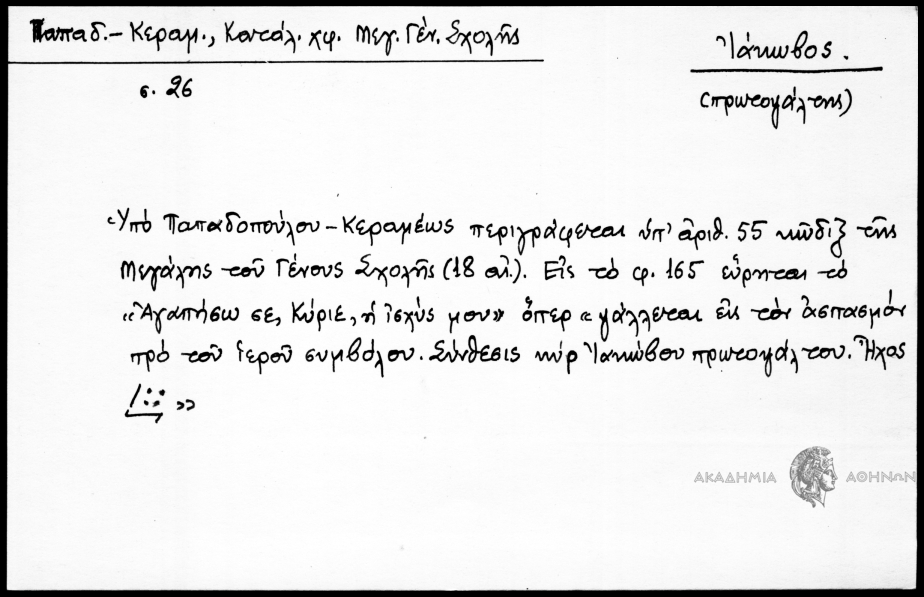 Παπαδ.- Κεραμ., Κατάλ. χφ. Μεγ. Γέν. Σχολῆς
Ἰάκωβος.
σ. 26
(πρωτοψάλτης)
Ὑπό Παπαδοπούλου-Κεραμέως περιγράφεται ὑπ' ἀριθ. 55 κῶδιξ τῆς
Μεγάλης τοῦ Γένους Σχολῆς (18 αἰ.). Εἰς τό φ. 165 εὕρηται τό
«Ἀγαπήσω σε, Κύριε, ἡ ἰσχύς μου» ὅπερ «ψάλλεται εἰς τόν ἀσπασμόν
πρό τοῦ ἱεροῦ συμβόλου. Σύνθεσις κύρ Ἰακώβου πρωτοψάλτου. Ἦχος
»
ΑΚΑΔΗΜΙΑ ΑΘΗΝΩΝ